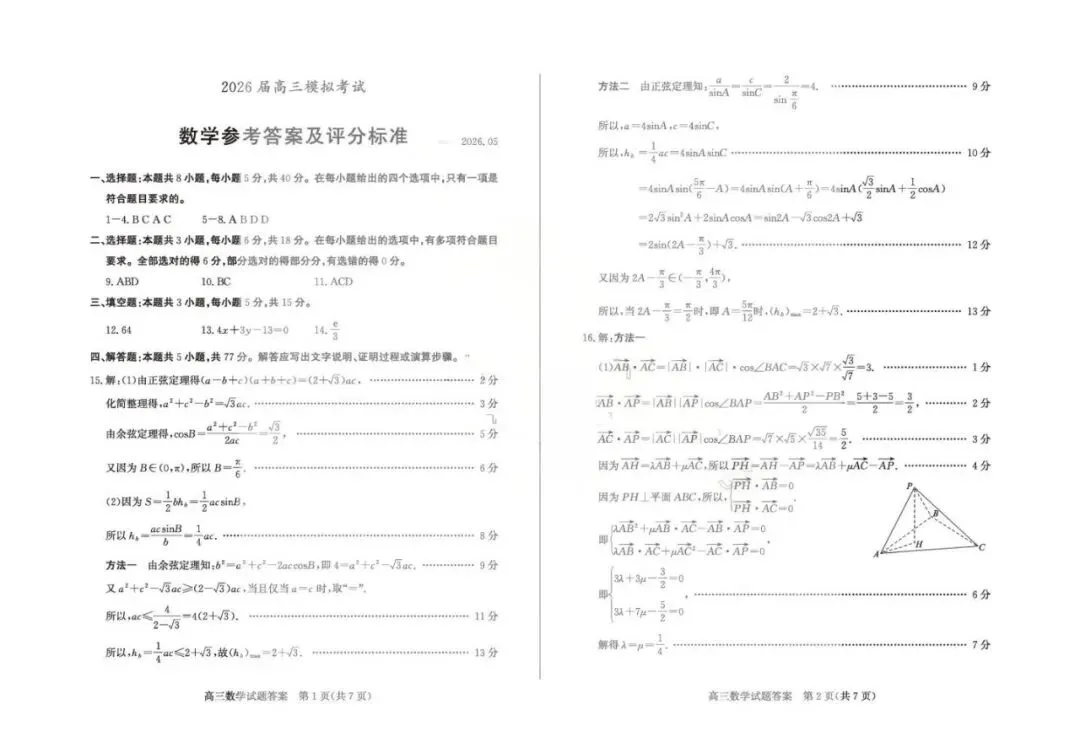 2026 届高三模拟考试
数学参考答案及评分标准
2026.05
一、选择题:本题共 8 小题,每小题 5 分,共 40 分。在每小题给出的四个选项中,只有一项是
符合题目要求的。
1-4. B C A C 5-8. A B D D
二、选择题:本题共 3 小题,每小题 6 分,共 18 分。在每小题给出的选项中,有多项符合题目
要求。全部选对的得 6 分,部分选对的得部分分,有选错的得 0 分。
9. ABD 10. BC 11. ACD
三、填空题:本题共 3 小题,每小题 5 分,共 15 分。
12. 64 13. 4x+3y-13=0 14. e/3
四、解答题:本题共 5 小题,共 77 分。解答应写出文字说明、证明过程或演算步骤。
15. 解:(1)由正弦定理得(a-b+c)(a+b+c)=(2+√3)ac, 2 分
化简整理得,a²+c²-b²=√3ac. 3 分
由余弦定理得,cosB=(a²+c²-b²)/2ac=√3/2, 5 分
又因为 B∈(0,π),所以 B=π/6. 6 分
(2)因为 S=1/2bh_b=1/2acsinB,
所以 h_b=acsinB/b=1/4ac. 8 分
方法一 由余弦定理知:b²=a²+c²-2accosB,即 4=a²+c²-√3ac. 9 分
又 a²+c²-√3ac≥(2-√3)ac,当且仅当 a=c 时,取“=”.
所以,ac≤4/(2-√3)=4(2+√3). 11 分
所以,h_b=1/4ac≤2+√3,故(h_b)max=2+√3. 13 分
高三数学试题答案 第 1 页(共 7 页)
方法二 由正弦定理知:a/sinA=c/sinC=2/sin(π/6)=4. 9 分
所以,a=4sinA,c=4sinC,
所以,h_b=1/4ac=4sinAsinC 10 分
=4sinAsin(5π/6-A)=4sinAsin(A+π/6)=4sinA(√3/2sinA+1/2cosA)
=2√3sin²A+2sinAcosA=sin2A-√3cos2A+√3
=2sin(2A-π/3)+√3. 12 分
又因为 2A-π/3∈(-π/3,4π/3),
所以,当 2A-π/3=π/2时,即 A=5π/12时,(h_b)max=2+√3. 13 分
16. 解:方法一
(1)AB·AC=|AB|·|AC|·cos∠BAC=√3×√7×√3/√7=3. 1 分
AB·AP=|AB||AP|cos∠BAP=(AB²+AP²-PB²)/2=(5+3-5)/2=3/2, 2 分
AC·AP=|AC||AP|cos∠BAP=√7×√5×√35/14=5/2. 3 分
因为 AH=λAB+μAC,所以 PH=AH-AP=λAB+μAC-AP. 4 分
因为 PH⊥平面 ABC,所以,{PH·AB=0
PH·AC=0.
即{λAB²+μAB·AC-AB·AP=0
λAB·AC+μAC²-AC·AP=0,
P
B
A
H
C
即{3λ+3μ-3/2=0
3λ+7μ-5/2=0, 6 分
解得 λ=μ=1/4. 7 分
高三数学试题答案 第 2 页(共 7 页)